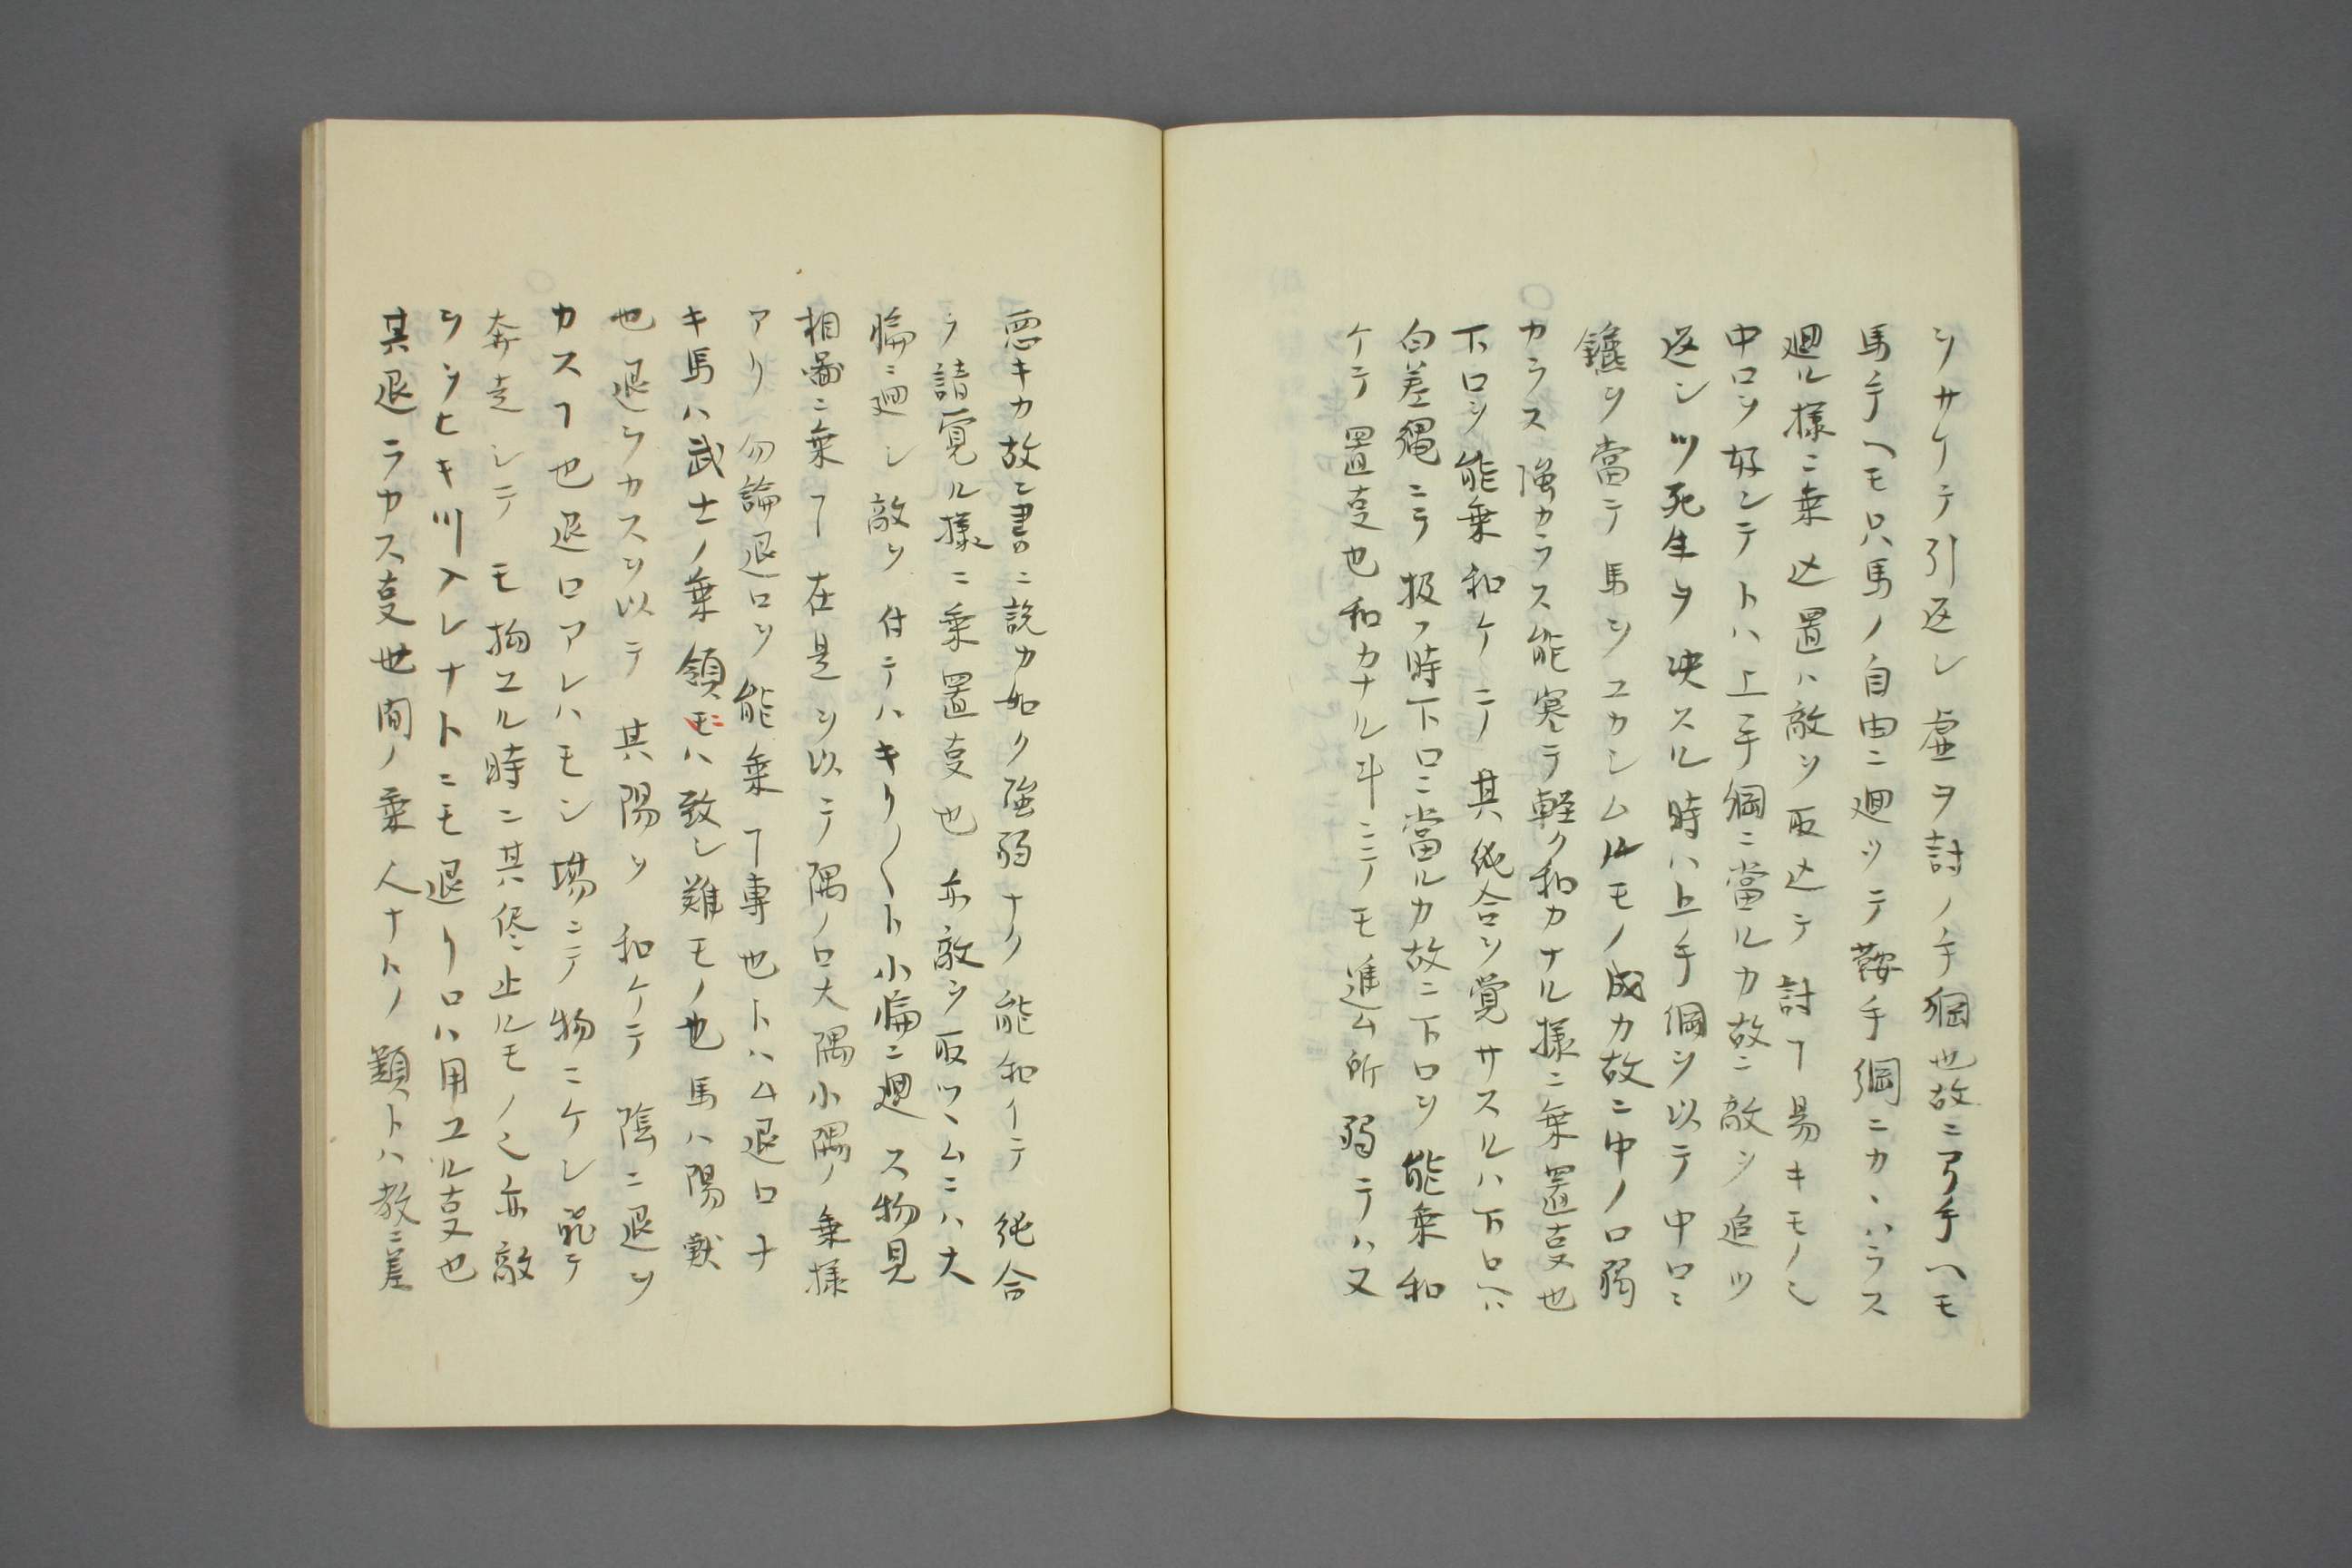 ヲサケテ引返シ虚ヲ討ノ手綱也故ニ弓手ヘモ
馬手ヘモ只馬ノ自由ニ廻ツテ鞍手綱ニカヽハラス
廻ル様ニ乗込置ハ敵ヲ取込テ討ヿ易キモノ也
中口ヲ好シテトハ上手綱ニ當ルカ故ニ敵ヲ追ツ
返シツ死生ヲ决スル時ハ上手綱ヲ以テ中口ニ
鑣ヲ當テ馬ヲユカシムルモノ成カ故ニ中ノ口弱
カラス強カラス能寒テ軽ク和カナル様ニ乗置叓也
下口ヲ能乗和ケニノ其純合ヲ覚サスルハ下口ハ
白差縄ニテ扱フ時下口ニ當ルカ故ニ下口ヲ能乗和
ケテ置叓也和カナル斗ニテモ進ム所弱テハ又
悪キカ故ニ書ニ説カ如ク強弱ナク能和イテ純合
ヲ請覚ル様ニ乗置叓也亦敵ヲ取ツヽムニハ大
輪ニ廻シ敵ヲ付テハキリ〱ト小輪ニ廻ス物見
相圖ニ乗ヿ在是ヲ以テ隅ノ口大隅小隅ノ乗様
アリ勿論退口ヲ能乗ヿ専也トハ退口ナ
キ馬ハ武士ノ乗領ニハ致シ難モノ也馬ハ陽獣
也退ヲカスヲ以テ其陽ヲ和ケテ陰ニ退ヲ
カスヿ也退口アレハモシ場ニテ物ニケシ飛テ
奔走シテモ拘ユル時ニ其侭止ルモノ也亦敵
ヲヲヒキ川入レナトニモ退リ口ハ用ユル叓也
其退ラカス叓世間ノ乗人ナトノ類トハ教ニ差